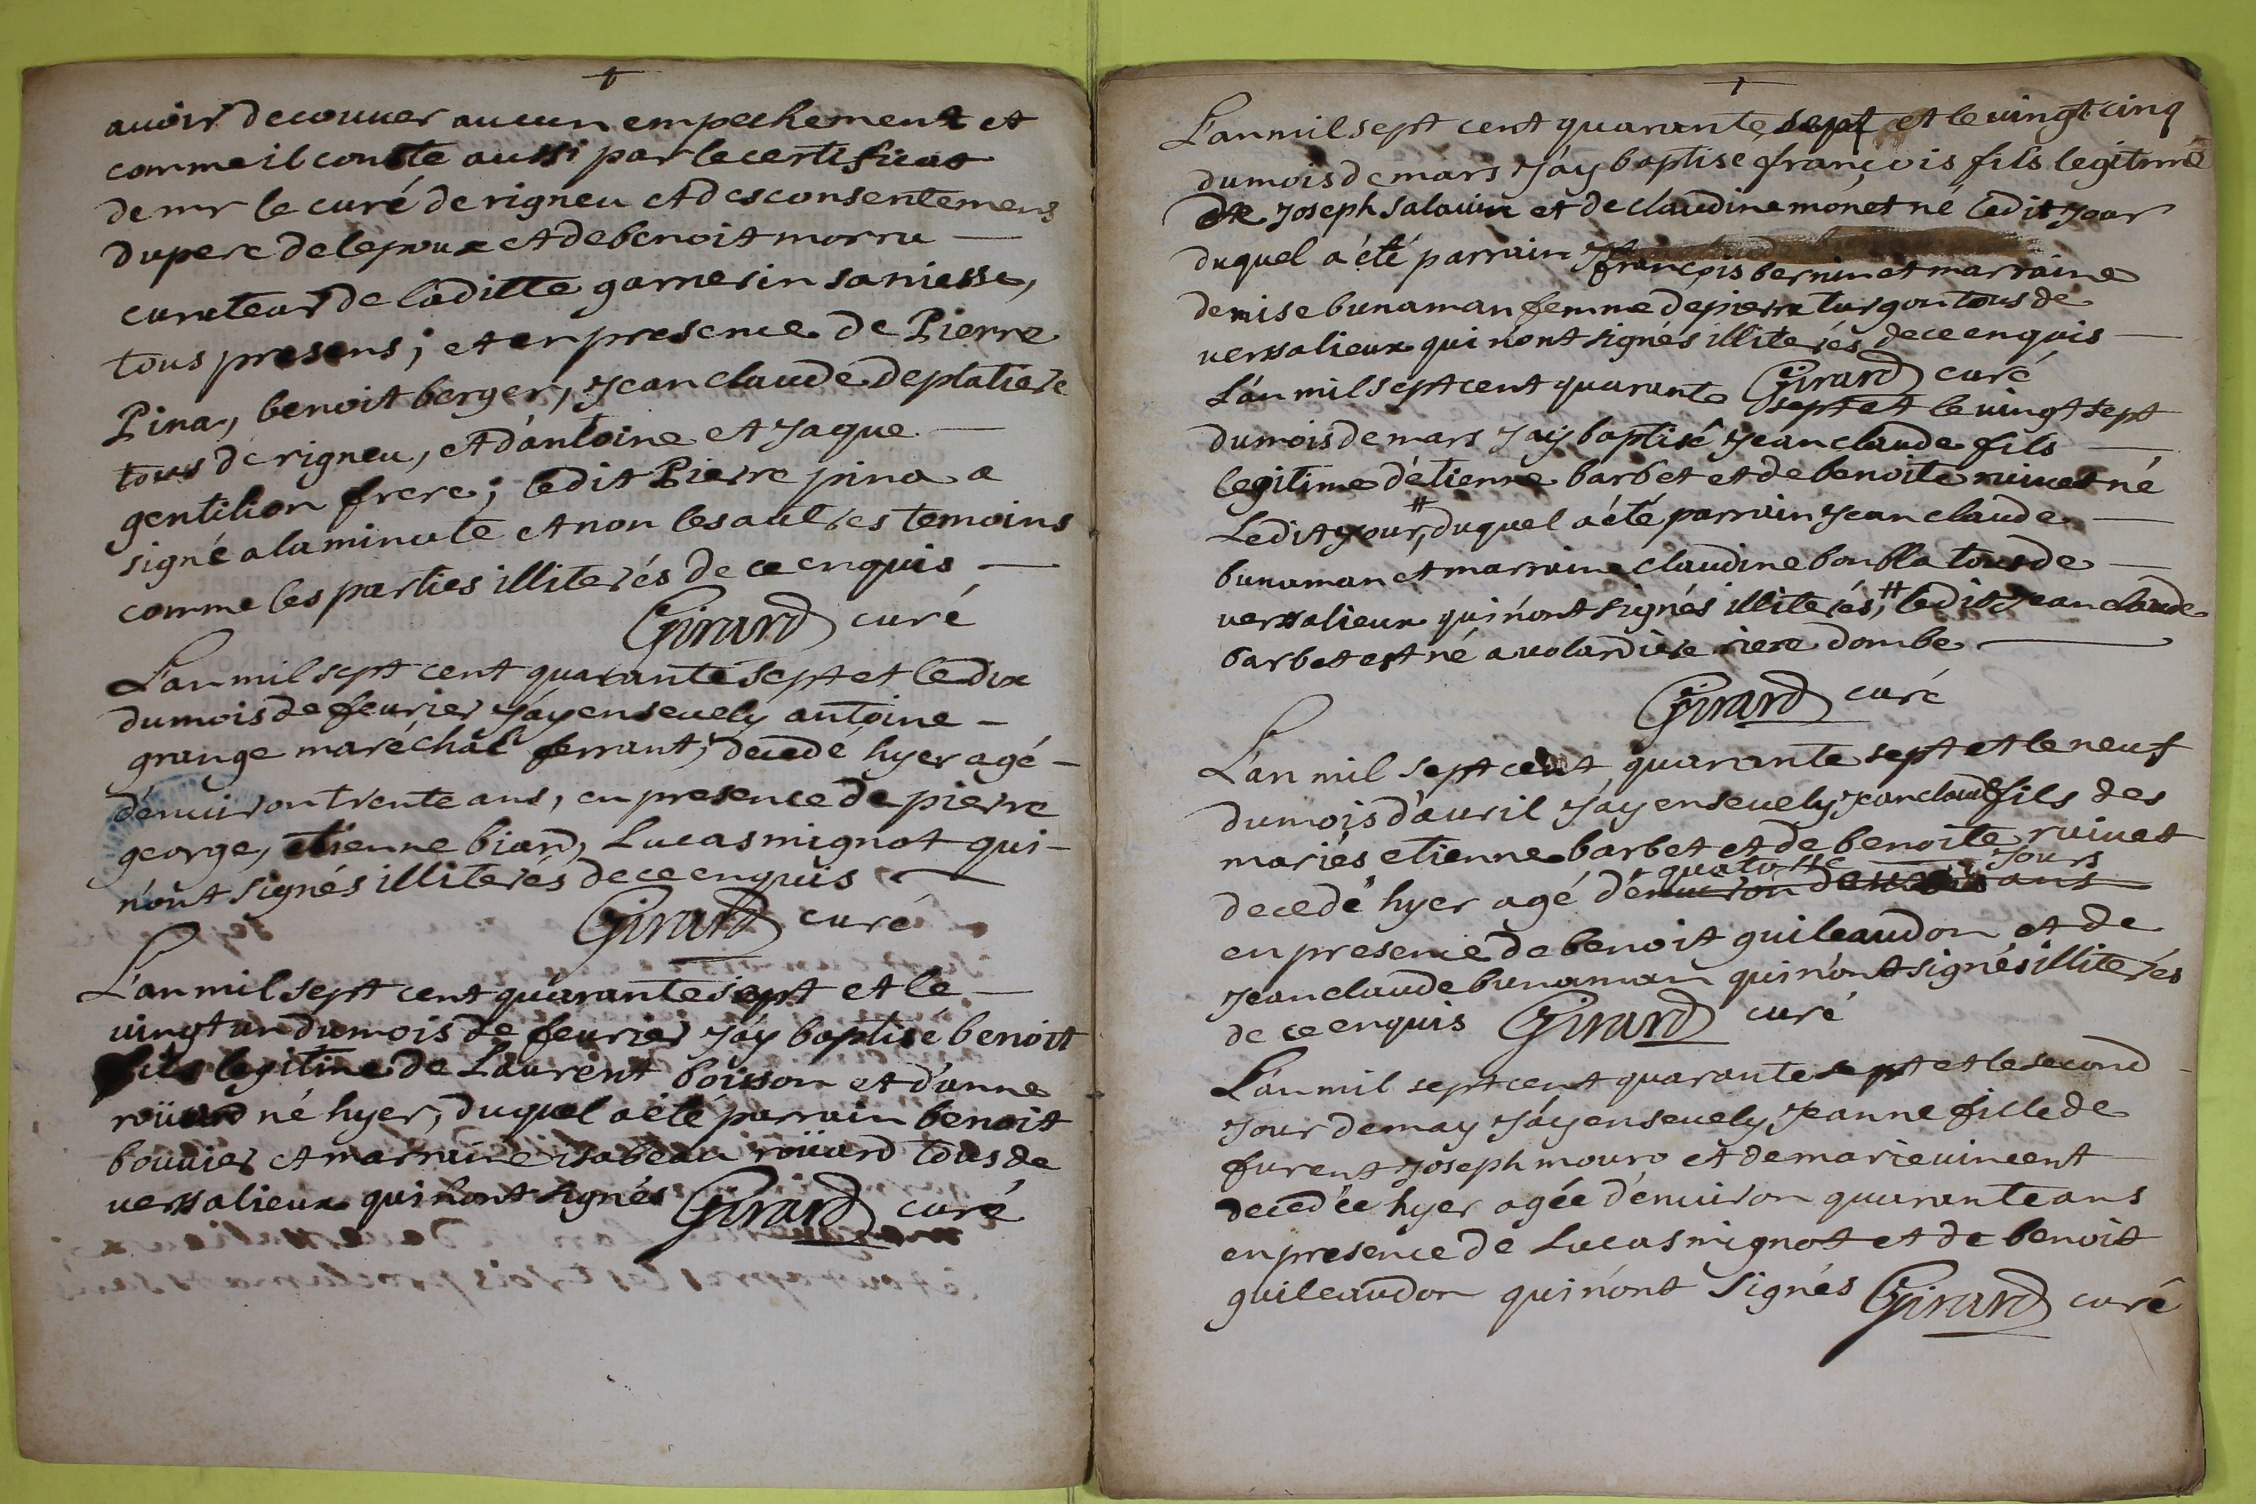 avoir decouver aucun empechement et
comme il conste aussi par le certificat
de mr le curé de rigneu et des consentemens
du pere de lepoux et de benoit morru
curateur de laditte garnerin sa niesse,
tous presens; et en presence de Pierre
Pina, benoit berger, Jean claude deplatiere
tous de rigneu, et d'antoine et Jaque
gentilion frere; ledit Pierre pina a
signé a la minute et non les autres temoins
comme les parties illiterés de ce enquis
Girard curé
L'an mil sept cent quarante sept et le dix
du mois de fevrier J'ay ensevely antoine
grange maréchal ferrant, decedé hyer agé
d'environ trente ans, en presence de pierre
george, etienne biard, Lucas mignot qui
n'ont signés illiterés de ce enquis
Girard curé
L'an mil sept cent quarante sept et le
vingt un du mois de fevrier J'ay baptisé benoit
fils legitime de Laurent boisson et d'anne
roüard né hyer, duquel a été parrain benoit
bouvier et marraine isabeau roüard tous de
versalieux qui n'ont signés Girard curé
L'an mil sept cent quarante sept et le vingt cinq
du mois de mars J'ay baptisé françois fils legitime
de Joseph salavin et de claudine monet né ledit Jour
duquel a été parrain
françois bernin et marraine
denise bunaman femme de pierre turgon tous de
versalieux qui n'ont signés illiterés de ce enquis
Girard curé
L'an mil sept cent quarante sept et le vingt sept
du mois de mars J'ay baptisé Jean claude fils
legitime d'étienne barbet et de benoite ruivet né
Ledit Jour,# duquel a été parrain Jean claude
bunaman et marraine claudine boubla tous de
versalieux qui n'ont signés illiterés,# ledit Jean claude
barbet est né a volardiere riere dombe
Girard curé
L'an mil sept cent quarante sept et le neuf
du mois d'avril J'ay ensevely Jean claude fils des
mariés etienne barbet et de benoite ruivet
quatorse Jours
decedé hyer agé d'environ ans
en presence de benoit guileaudon et de
Jean claude bunaman qui n'ont signés illiterés
de ce enquis Girard curé
L'an mil sept cent quarante sept et le second
Jour de may J'ay ensevely Jeanne fille de
furent Joseph mouro et de marie vincent
decedée hyer agée d'environ quarante ans
en presence de Lucas mignot et de benoit
guileaudon qui n'ont signés Girard curé